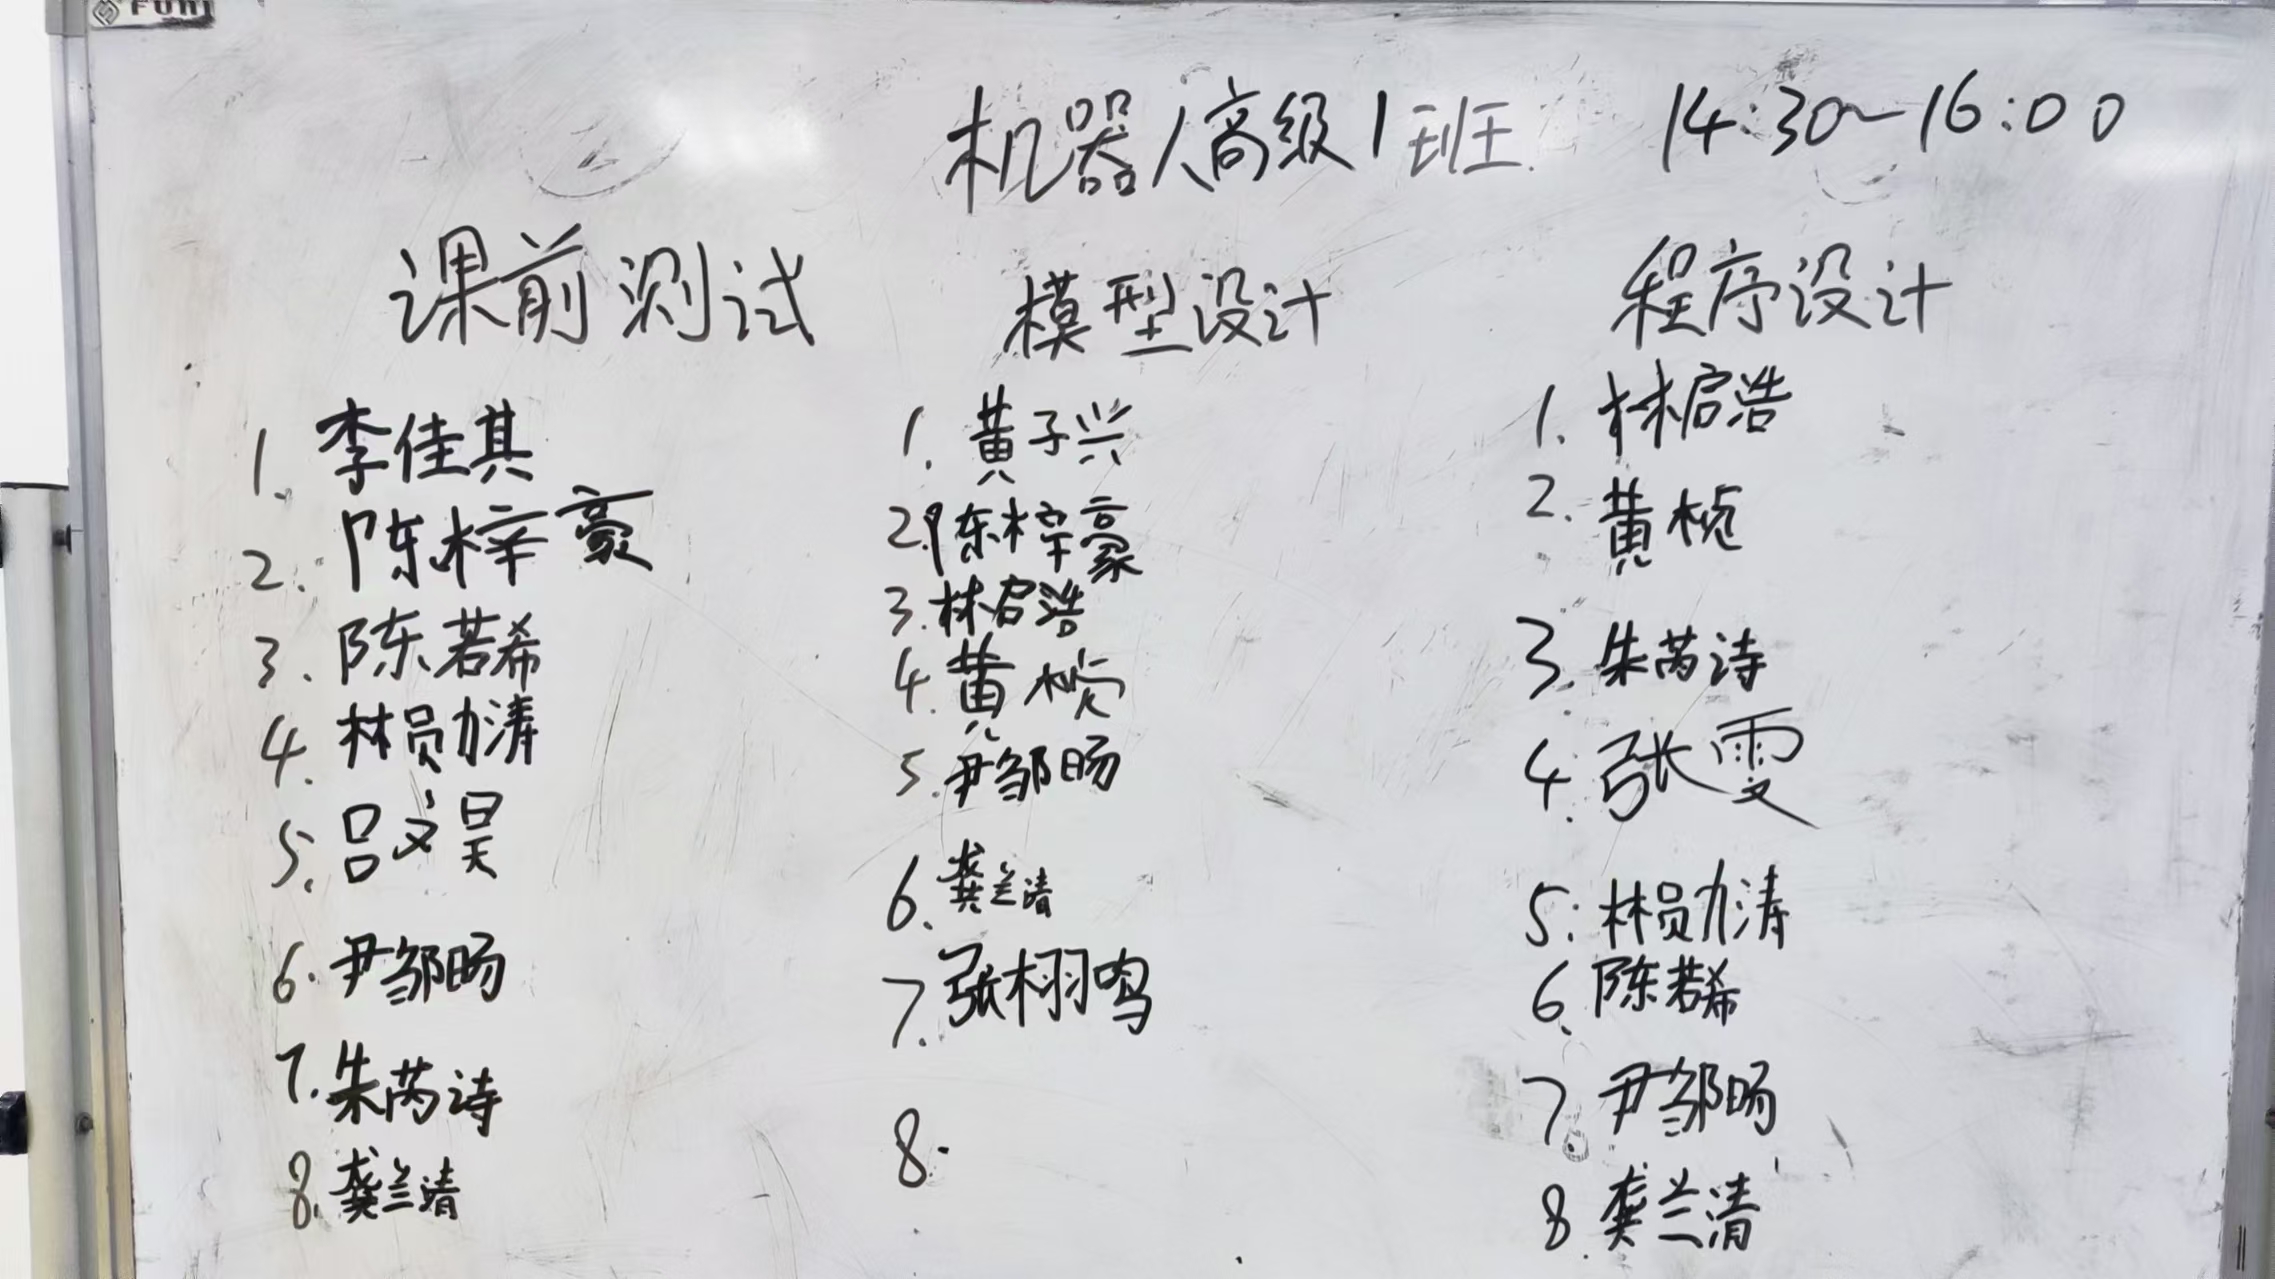 FUNI
机器人高级1班 14:30~16:00
课前测试
1. 李佳其
2. 陈梓豪
3. 陈若希
4. 林勋涛
5. 吕文昊
6. 尹邹旸
7. 朱芮诗
8. 龚兰清
模型设计
1. 黄子兴
2. 陈梓豪
3. 林启浩
4. 黄桢
5. 尹邹旸
6. 龚兰清
7. 张栩鸣
8.
程序设计
1. 林启浩
2. 黄桢
3. 朱芮诗
4. 张雯
5. 林勋涛
6. 陈若希
7. 尹邹旸
8. 龚兰清